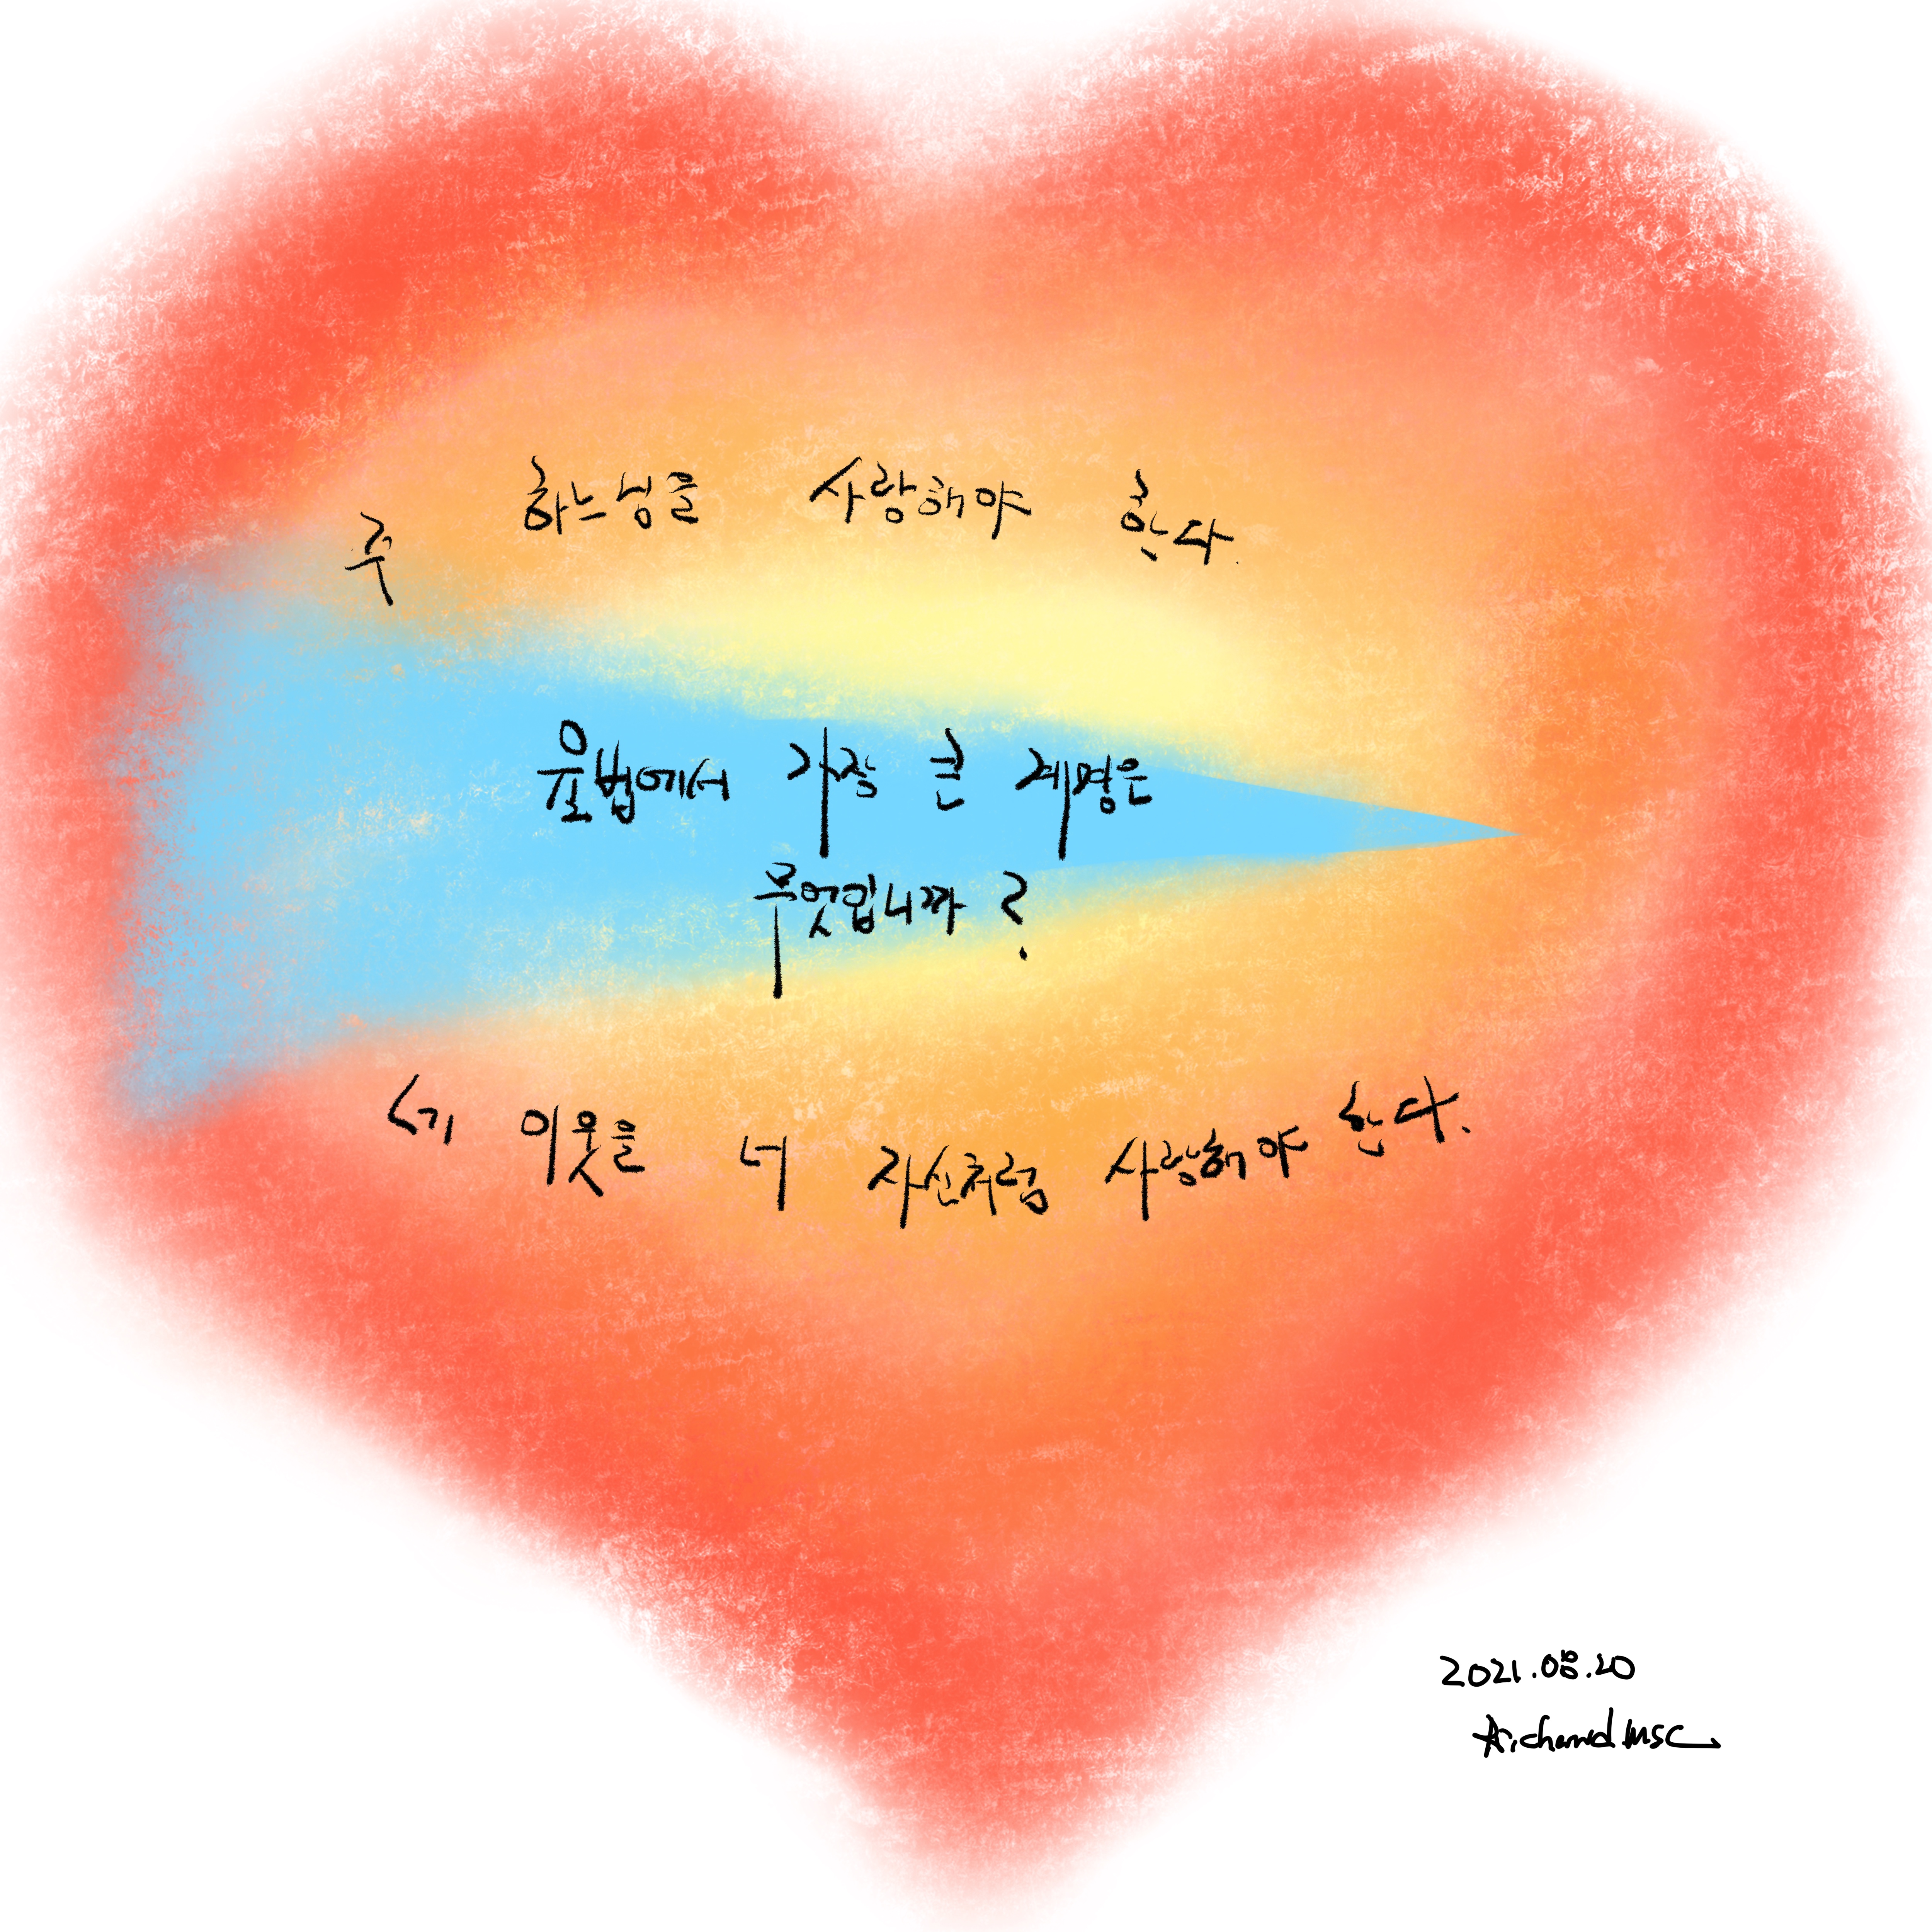 주 하느님을 사랑해야 한다.
율법에서 가장 큰 계명은
무엇입니까?
네 이웃을 너 자신처럼 사랑해야 한다.
2021.08.20
Richard MSC